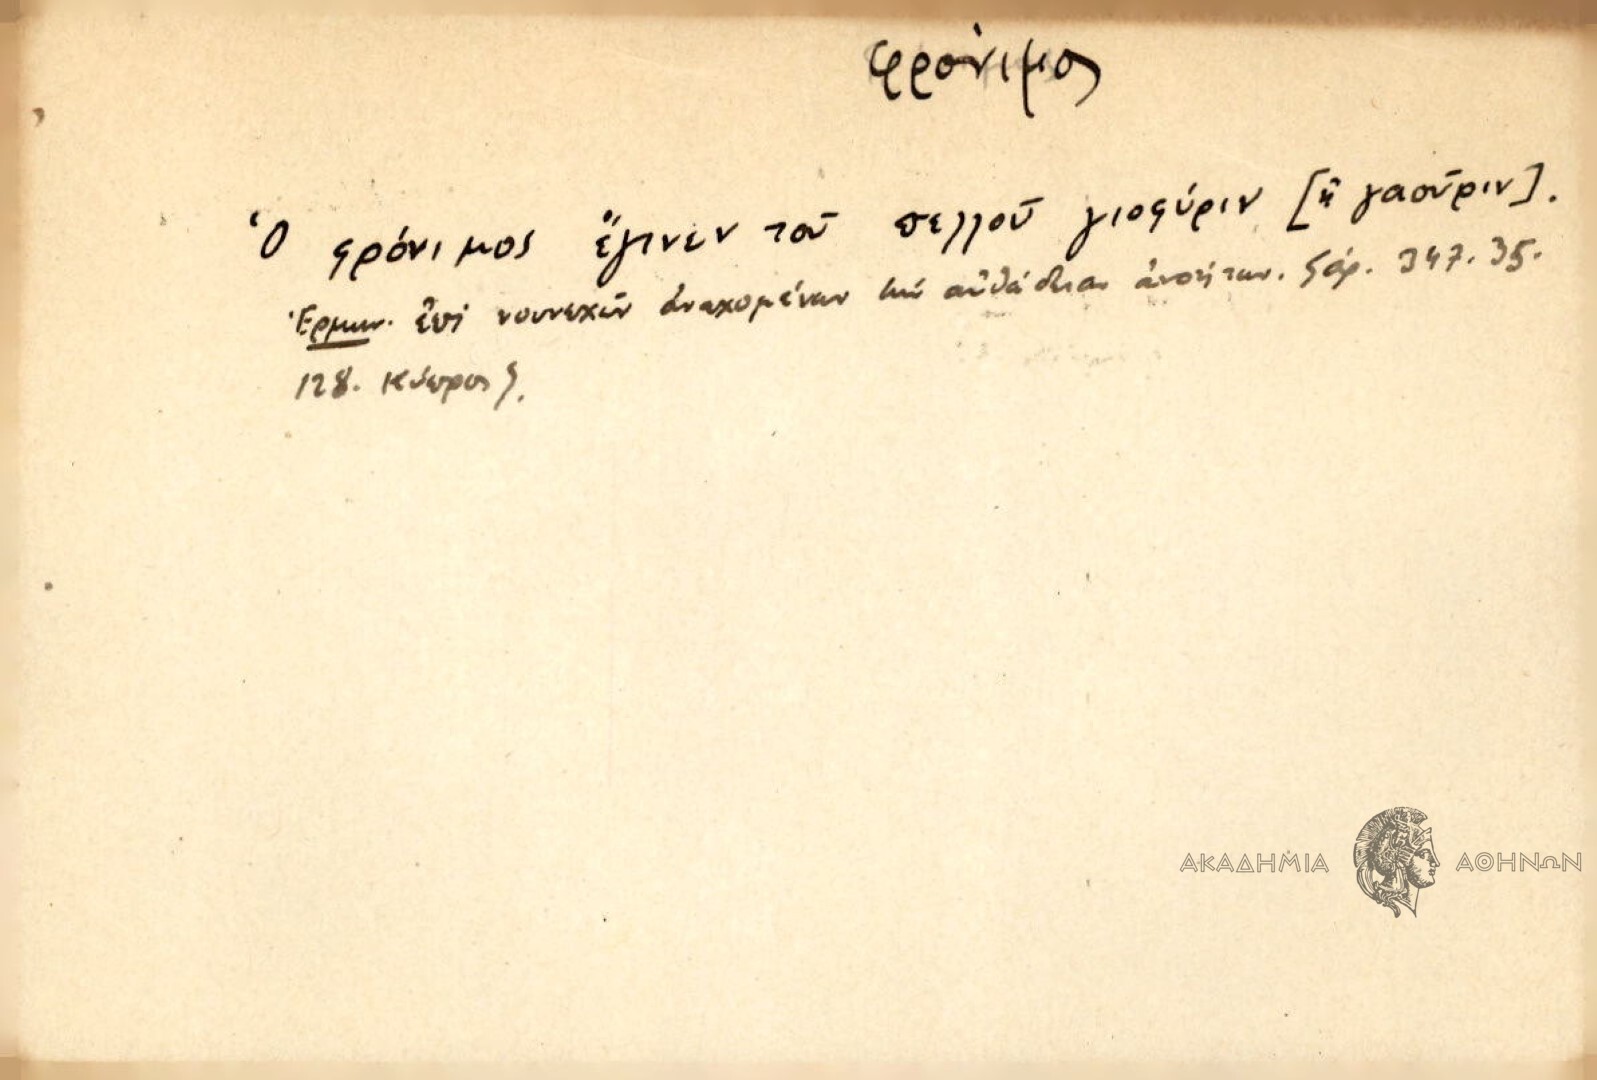 φρόνιμος
Ὁ φρόνιμος ἔγινεν τοῦ πελλοῦ γιοφύριν [ἢ γαούριν].
Ἑρμην. ἐπὶ νουνεχῶν ἀναχομένων τὴν αὐθάδειαν ἀνοήτων. Σάρ. 347. 35.
128. Κύπρος
ΑΚΑΔΗΜΙΑ ΑΘΗΝΩΝ